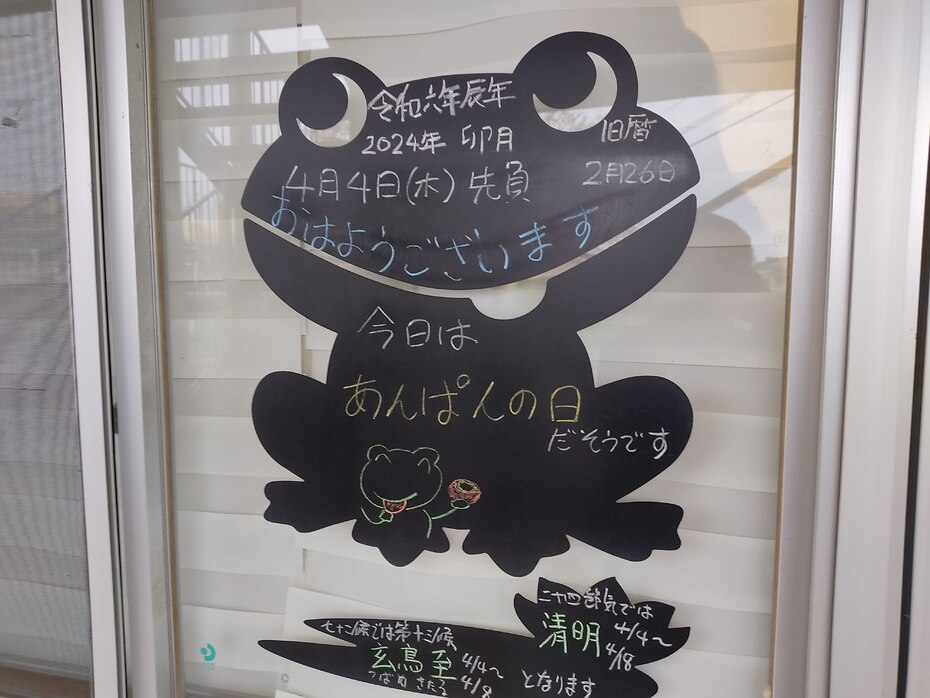 令和六年辰年
2024年 卯月
旧暦
4月4日(木) 先負
2月26日
おはようございます
今日は
あんぱんの日
だそうです
二十四節気では
清明 4/4〜
4/18
七十二候では第十三候
玄鳥至 4/4〜
つばめきたる 4/8
となります